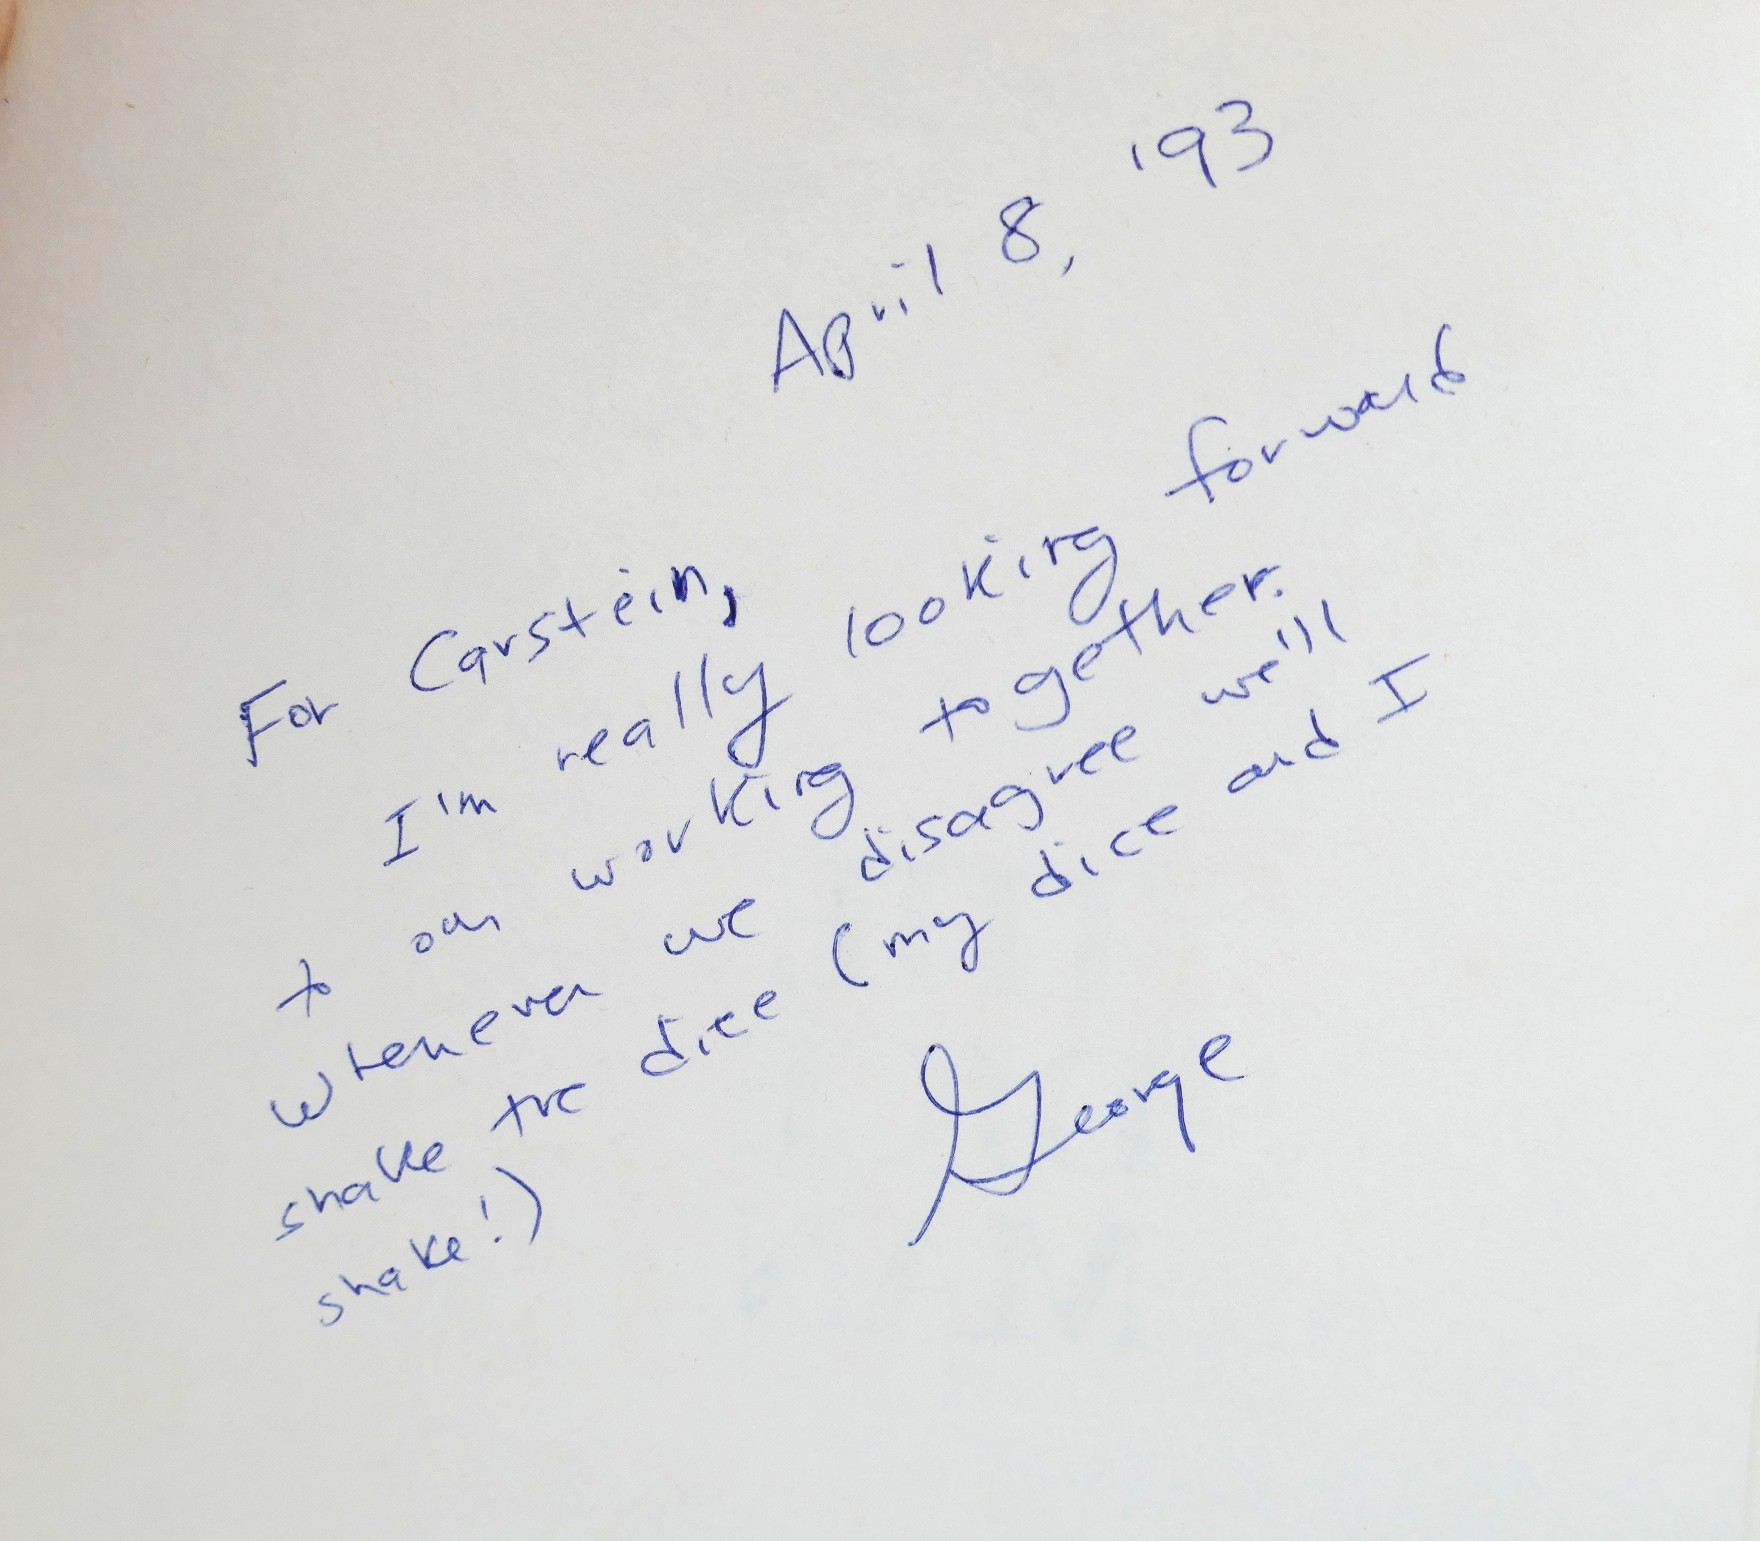 April 8, '93
For Carstein,
I'm really looking forward
to our working together.
Whenever we disagree we'll
shake the dice (my dice and I
shake!)
George